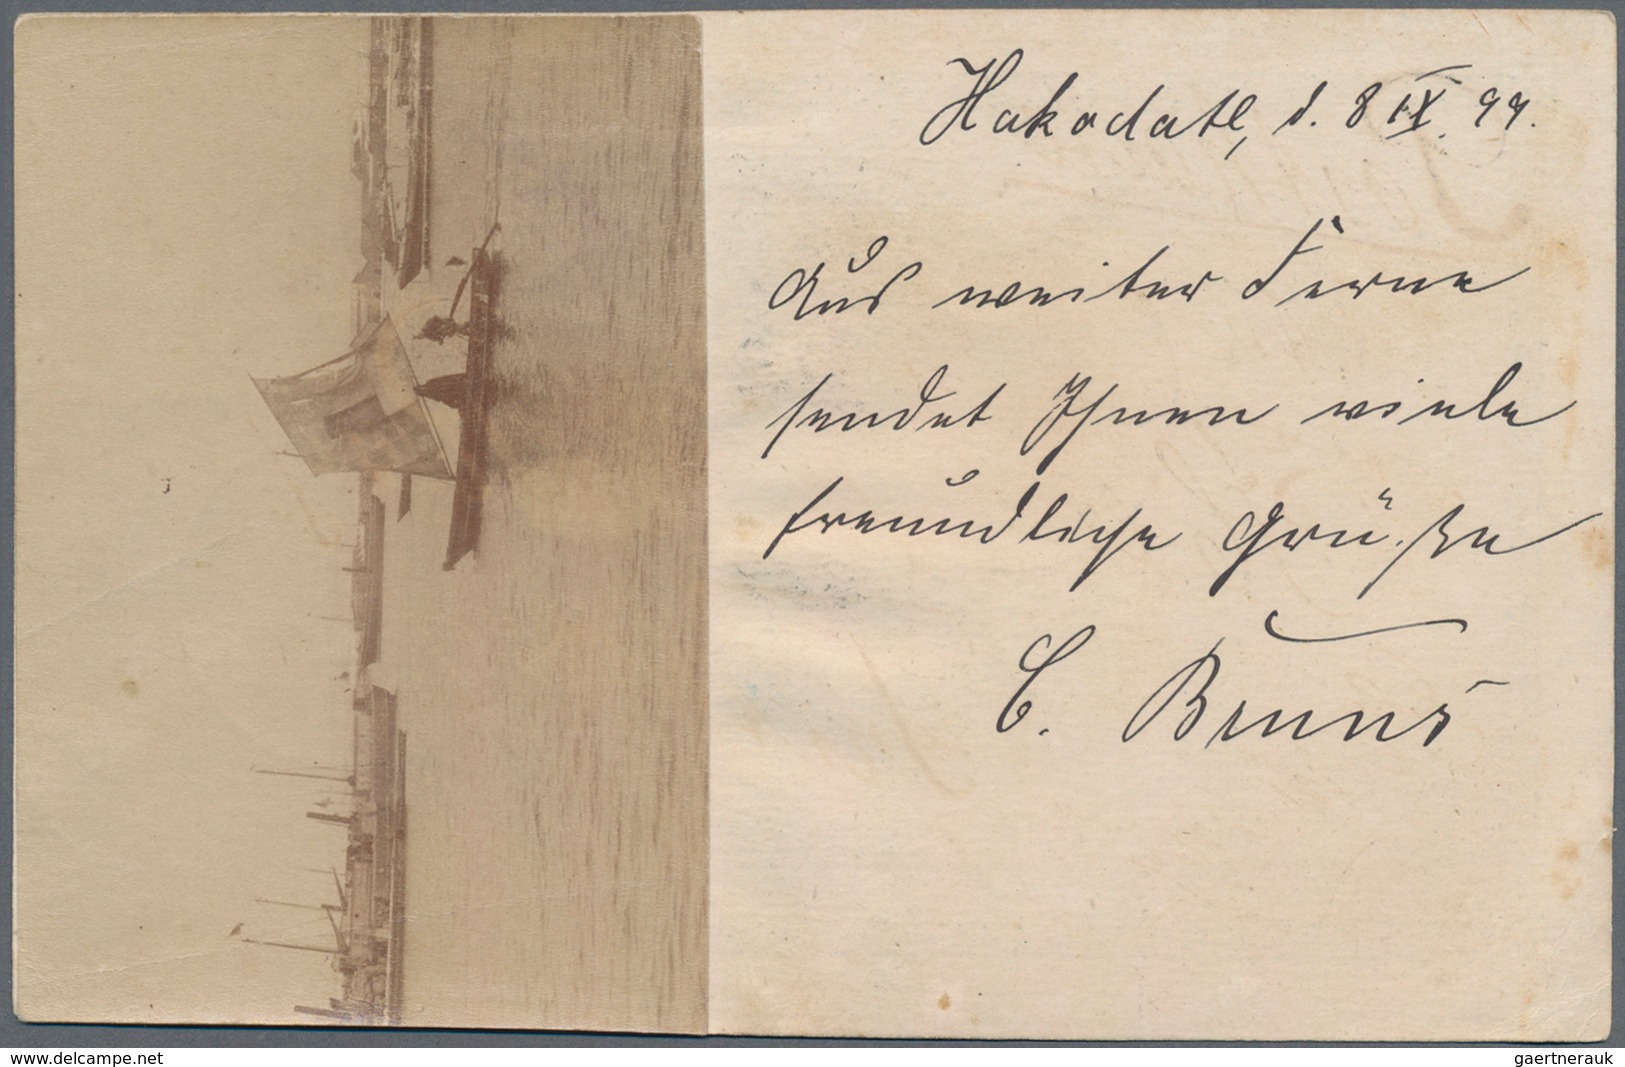 Hakodate, d. 8 IX. 99.
Aus weiter Ferne
sendet Ihnen viele
freundliche Grüße
C. Bruns
www.delcampe.net
gaertnerauk